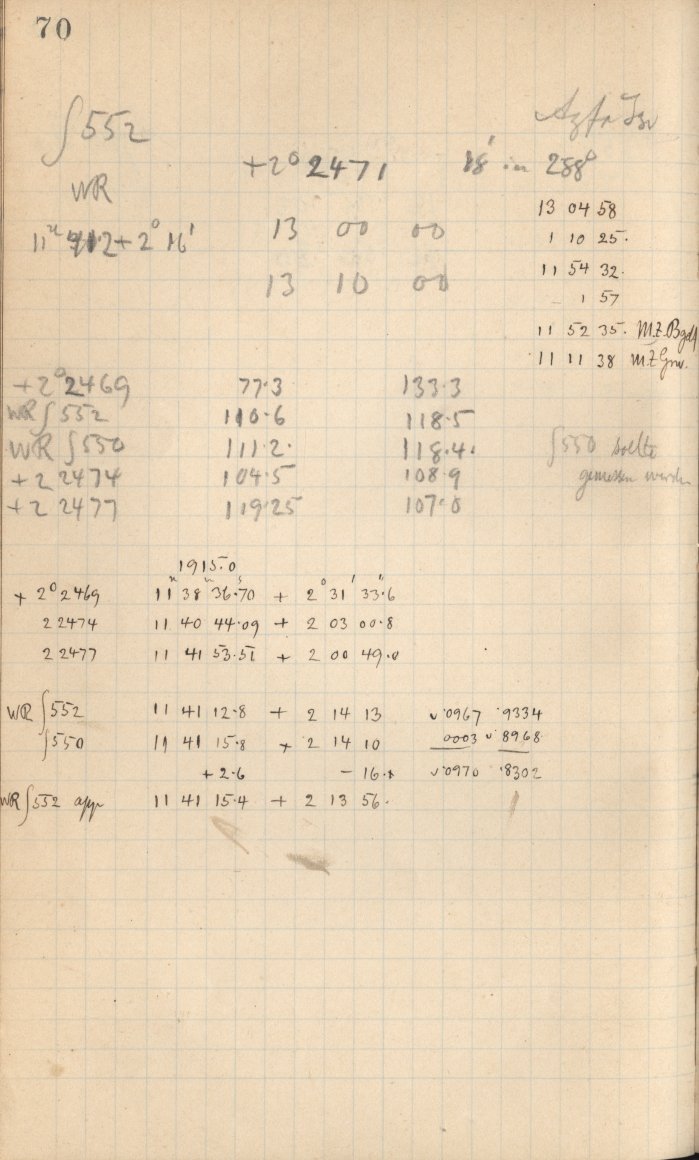 70
∫552
+2° 2471 18' in 288°
WR
11ʰ 41.2 + 2° 16'
13 00 00
13 10 00
13 04 58
1 10 25.
11 54 32.
1 57
11 52 35. M.Z. Bgdf
11 11 38 M.Z. Grw.
+2° 2469 77.3 133.3
WR ∫552 110.6 118.5
WR ∫550 111.2. 118.4.
+2 2474 104.5 108.9
+2 2477 119.25 107.0
∫550 sollte
gemessen werden
1915.0
+ 2° 2469 11ʰ 38ᵐ 36ˢ.70 + 2° 31' 33".6
2 2474 11 40 44.09 + 2 03 00.8
2 2477 11 41 53.51 + 2 00 49.0
WR ∫552 11 41 12.8 + 2 14 13 0.0967 .9334
∫550 11 41 15.8 + 2 14 10 0003 8968
+2.6 - 16. 0.0970 .8302
WR ∫552 app 11 41 15.4 + 2 13 56.